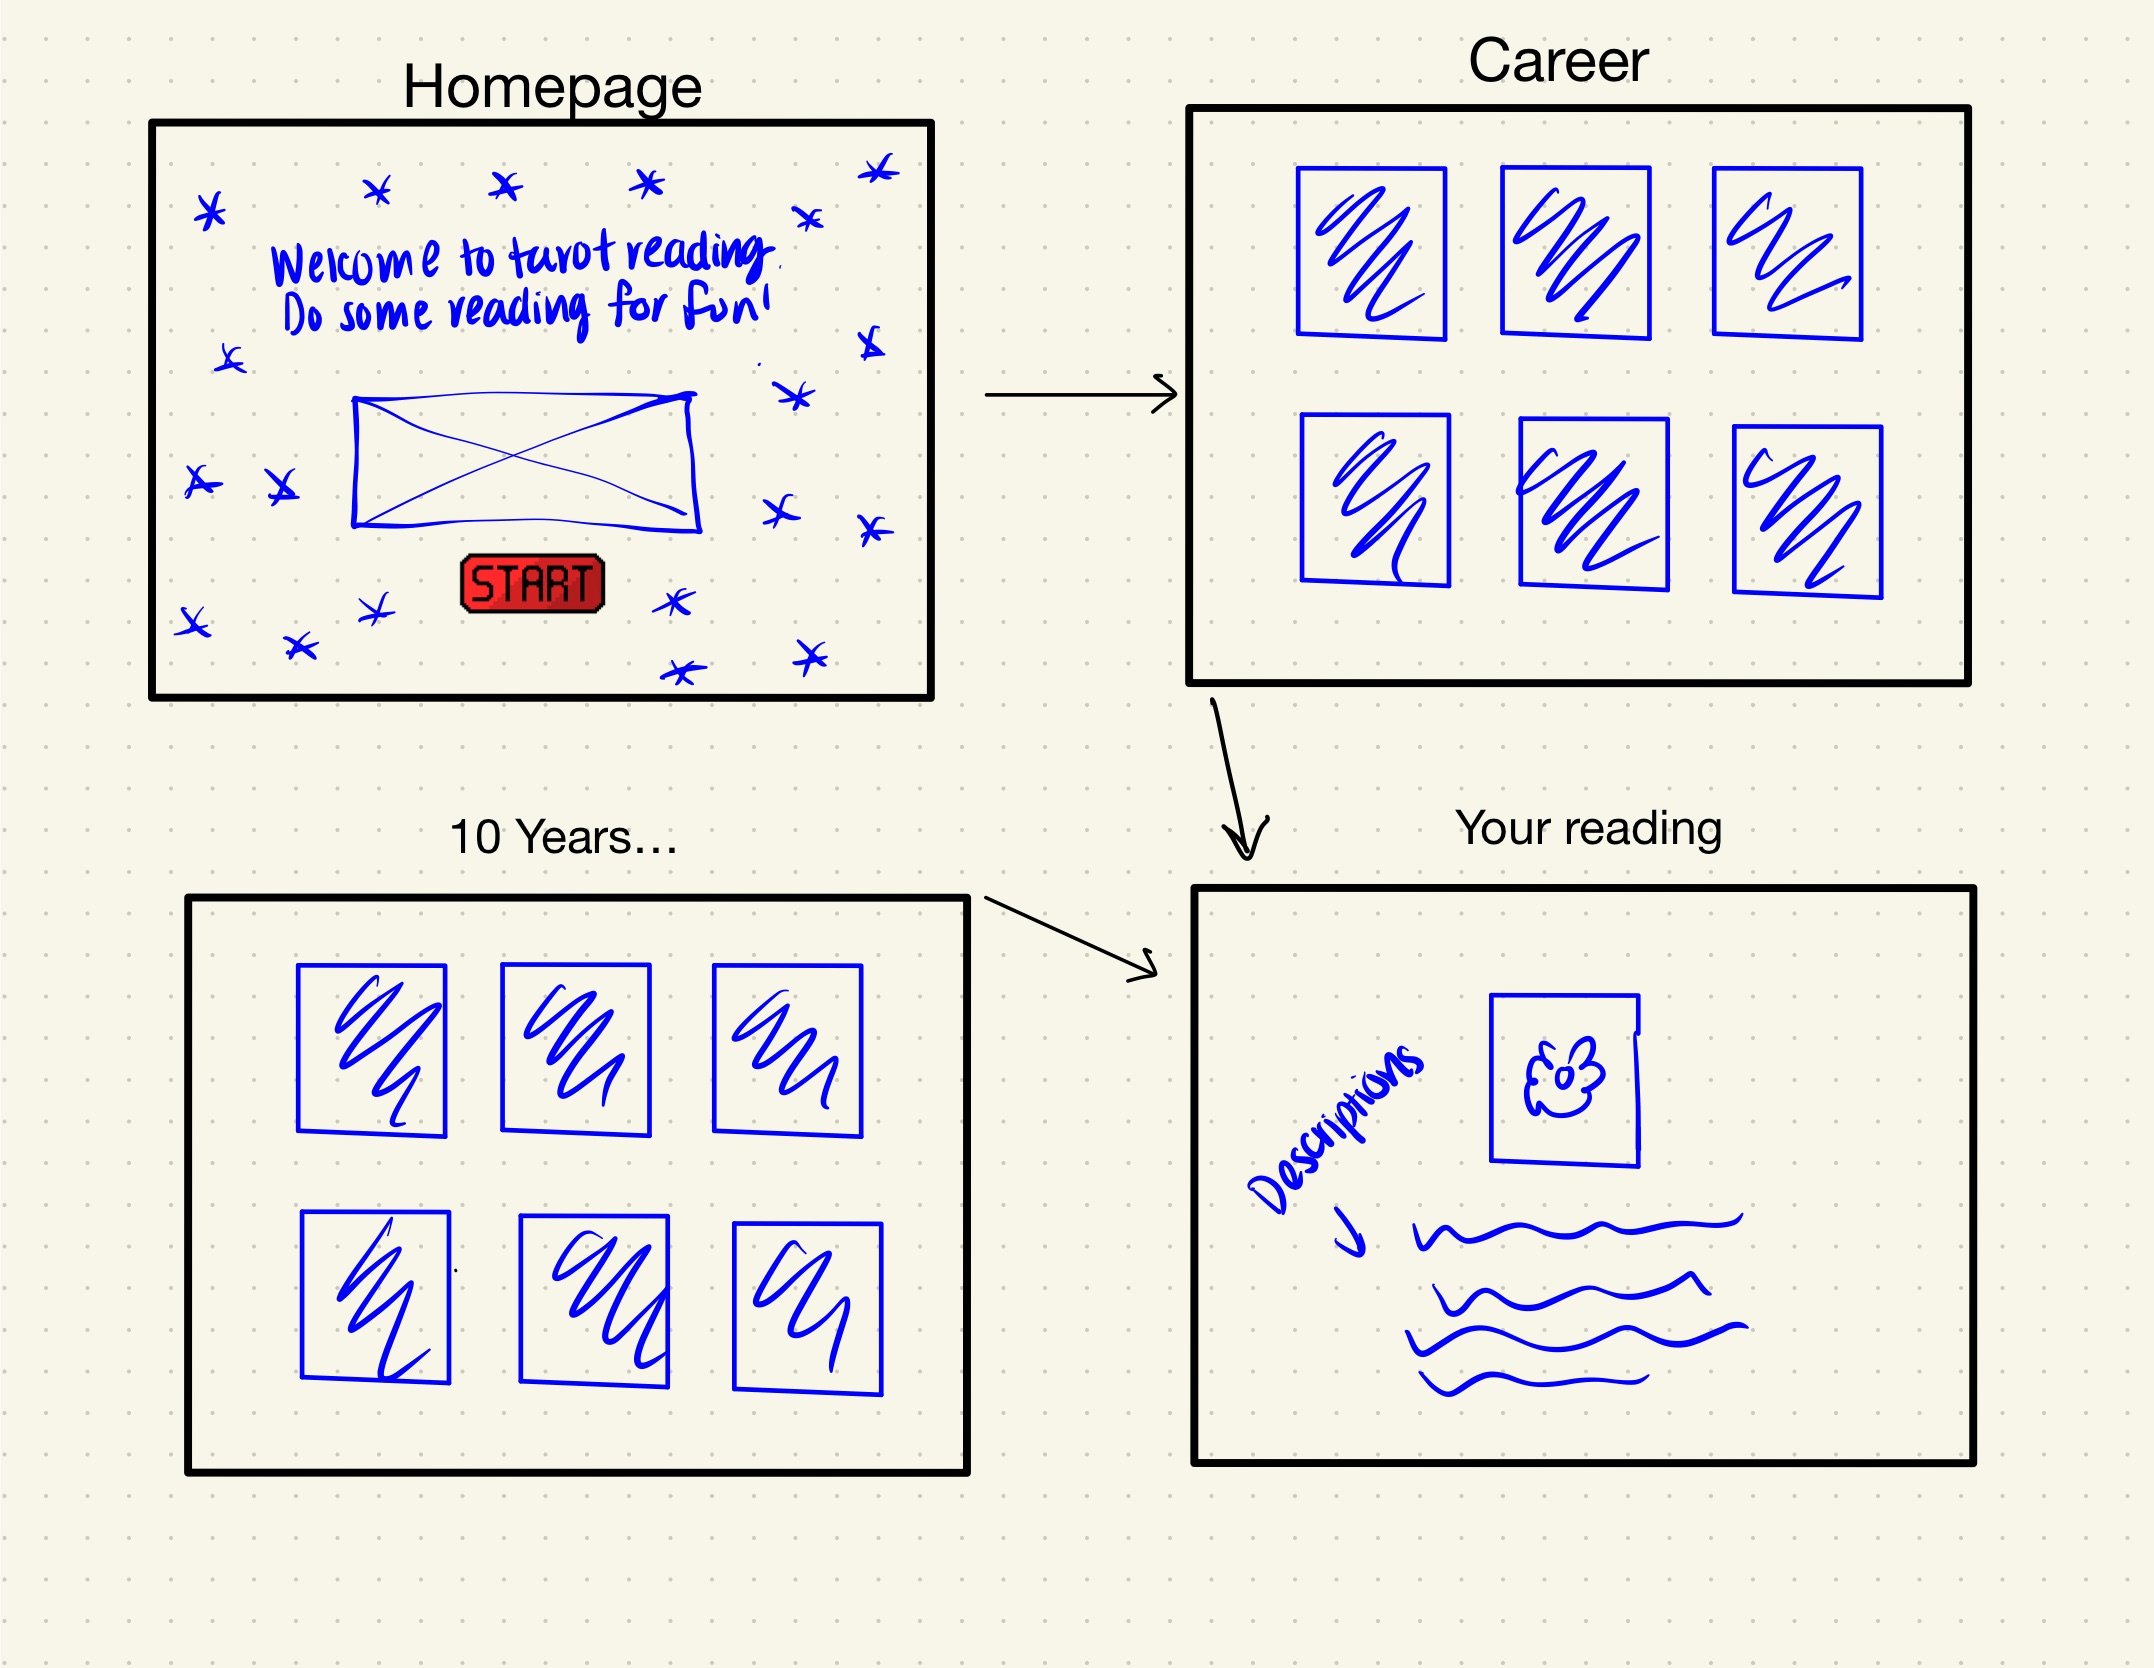 Homepage
Welcome to tarot reading.
Do some reading for fun!
START
Career
10 Years...
Your reading
Descriptions